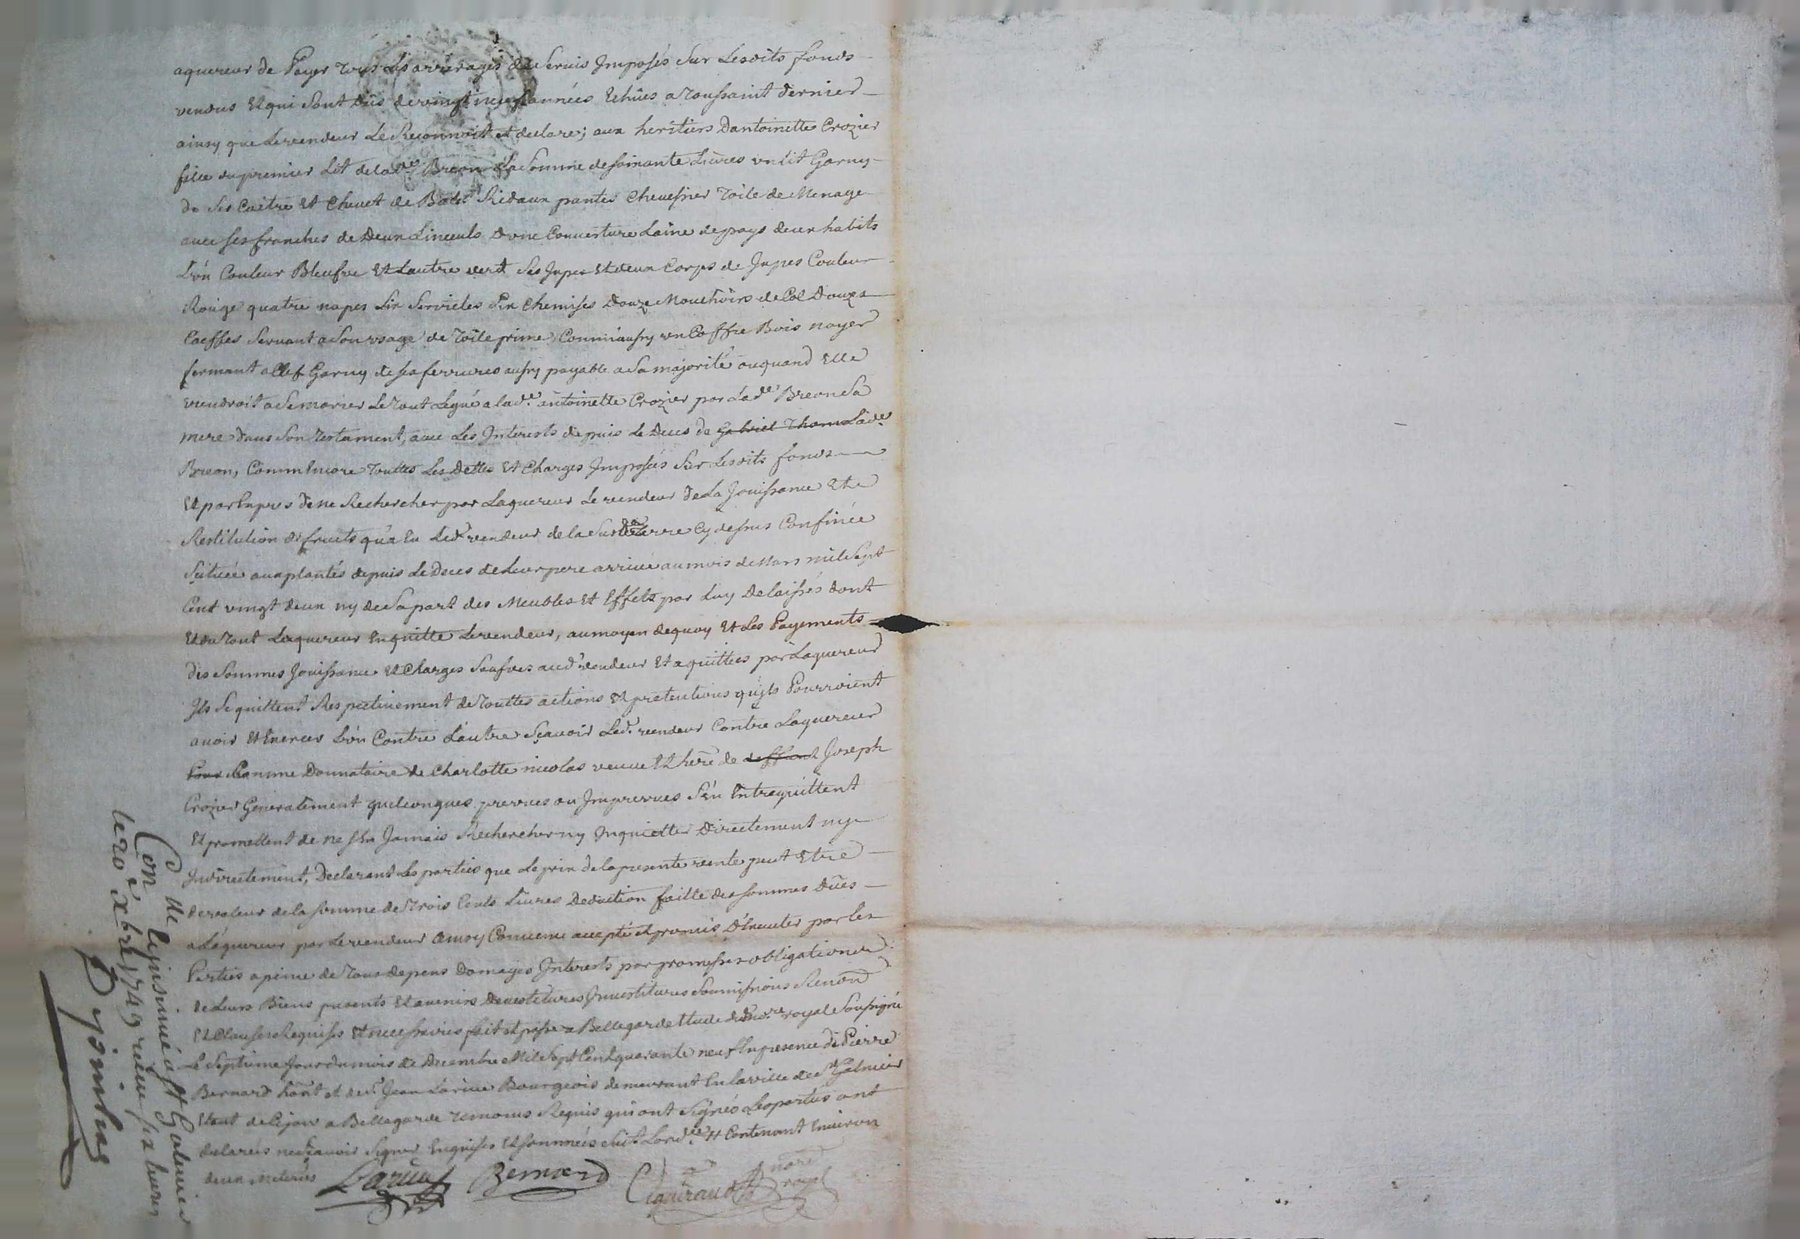 aquereur de Payer tous Les arrerages de Servis Imposés Sur Lesdits fonds
vendus Et qui Sont Dus de vingt neuf années Echües a Toussaint dernier
ainsy que Le vendeur Le Reconnoit et declare; aux heritiers Dantoinette Crozier
fille du premier Lit de lad.e Breon La Somme de soixante Livres un Lit Garny
de Ses Caitre Et Chevet de Rideaux pantes Toile de Menage
avec ses franches de Deux Linceuls Dune Couverture Laine de pays deux habits
L'ún Couleur Bleufve Et Lautre vert Ses Jupes Et deux Corps de Jupes Couleur
Rouge quatre napes Six Servietes Six Chemises Douze Mouchoirs de Col Douze
Coeffes Servant a Son usage de Toile prime, Comm'aussy un Coffre Bois noyer
fermant a Clef Garny de sa ferrures aussy payable a Sa majorité ou quand Elle
viendroit a Se marier Le tout Legué a lad.e antoinette Crozier par Lad.e Breon Sa
mere dans Son Testament, avec Les Interests depuis Le Deces de Gabriel Thom Lad.e
Breon, Comm'Encore Touttes Les Dettes Et Charges Imposées Sur Lesdits fonds
Et par Expres de ne Rechercher par Laquereur Le vendeur de La Jouissance Et
Restitution de fruits qu'a Eu Led. vendeur de la Terre Cy dessus Confinée
Scituée aux plantés depuis Le Deces de Leur pere arrivé au mois de Mars mil Sept
Cent vingt deux ny de Sa part des Meubles Et Effets par Luy Delaissés dont
Et du Tout Laquereur En quitte Le vendeur, au moyen de quoy Et Les Payements
des Sommes Jouissance Et Charges aud. vendeur Et aquittées par Laquereur
Ils Se quittent Respectivement de Touttes actions Et pretentions qu'ils Pourroient
avoir Et Exercer L'ún Contre L'autre Sçavoir Led. vendeur Contre Laquereur
Comme Donnataire de Charlotte nicolas veuve Et here de deffunt Joseph
Crozier Generalement quelconques prevues ou Imprevues S'en Entrequittent
Et promettent de ne s'En Jamais Rechercher ny Inquietter Directement ny
Indirectement, Declarant Les parties que Le prix de la presente vente peut Etre
de valeur de la somme de Trois Cents Livres Deduction faitte des sommes Dües
a Laquereur par Le vendeur Convenu accepté et promis D'Executer par Les
Parties a peine de Tous depens Domages Interests par promesses obligation
de Leurs Biens presents Et avenirs Devestitures Investitures Soumissions Renon.
Et Clauses Requises Et necessaires fait et passé a Bellegarde Etude du no.re royal Soussigné
Le Septieme Jour du mois de Decembre Mil Sept Cent quarante neuf En presence de Pierre
Bernard et de S. Jean Larive Bourgeois demeurant En la ville de S.t Galmier
Etant de Cejour a Bellegarde Temoins Requis qui ont Signés Les parties ont
declarés ne Sçavoir Signer Enquises Et sommées Suit. Lord.ce Contenant Environ
deux
Larive Bernard Ciguiraud no.re royal
Con.lle Et Insinué a S.t Galmier
le 20 xbre 1749 reçu six livres